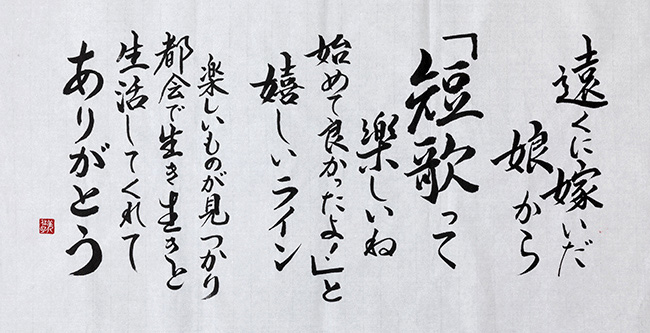 遠くに嫁いだ
娘から
「短歌って
楽しいね
始めて良かったよ！」と
嬉しいライン
楽しいものが見つかり
都会で生き生きと
生活してくれて
ありがとう